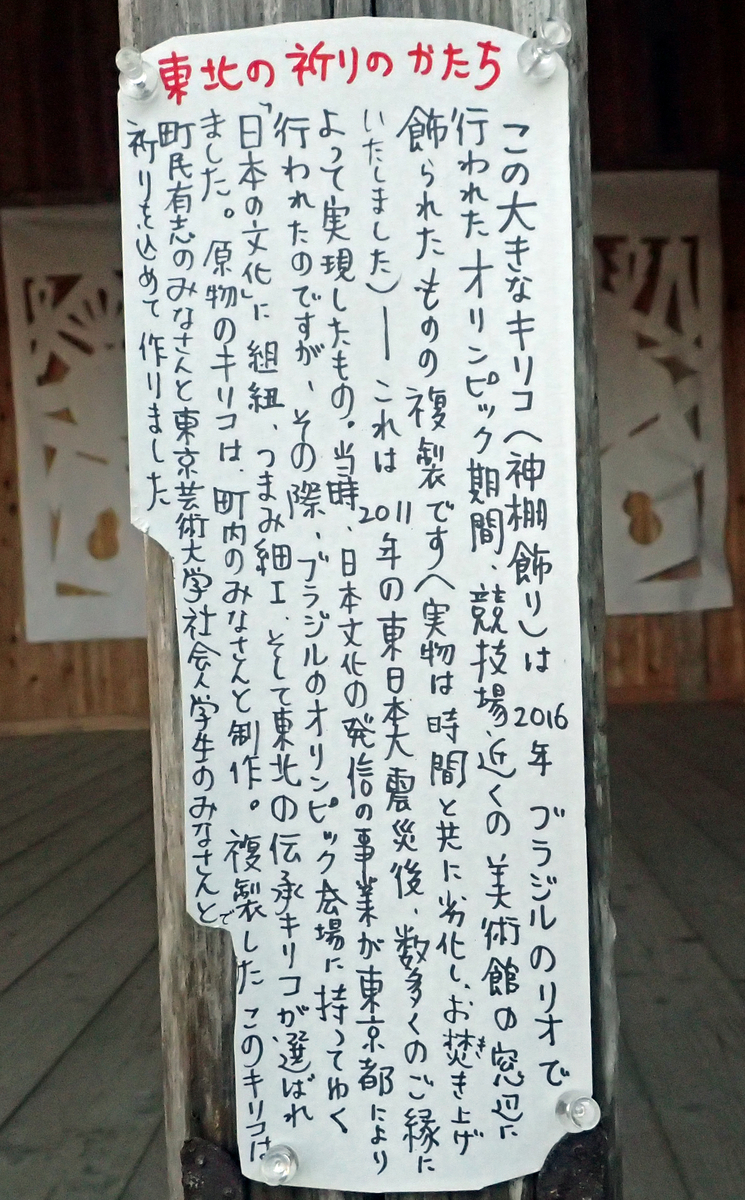 東北の祈りのかたち
この大きなキリコ（神棚飾り）は 2016年 ブラジルのリオで
行われたオリンピック期間、競技場近くの美術館の窓辺に
飾られたものの複製です（実物は時間と共に劣化し、お焚き上げ
いたしました）── これは 2011年の東日本大震災後、数多くのご縁に
よって実現したもの。当時、日本文化の発信の事業が東京都により
行われたのですが、その際、ブラジルのオリンピック会場に持ってゆく
「日本の文化」に 組紐、つまみ細工、そして東北の伝承キリコが選ばれ
ました。原物のキリコは、町内のみなさんと制作。複製したこのキリコは
町民有志のみなさんと東京芸術大学社会人学生のみなさんとで
祈りを込めて作りました